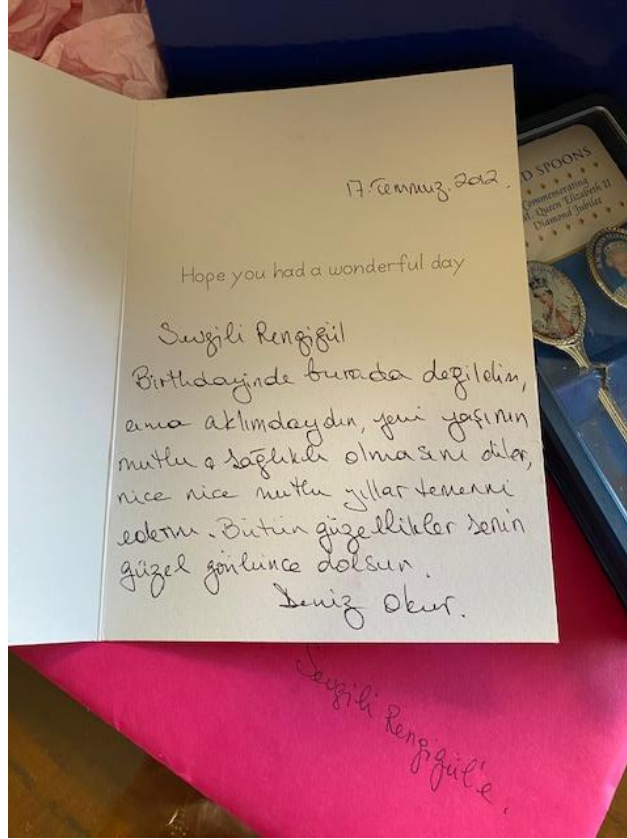 17.Temmuz.2012.
Hope you had a wonderful day
Sevgili Rengigül
Birthdayinde burada değildin,
ama aklımdaydın, yeni yaşının
mutlu, sağlıklı olmasını diler,
nice nice mutlu yıllar temenni
ederim. Bütün güzellikler senin
güzel gönlünce dolsun.
Deniz Okur.
D SPOONS
Commemorating
M. Queen Elizabeth II
Diamond Jubilee
Sevgili Rengigül'e.